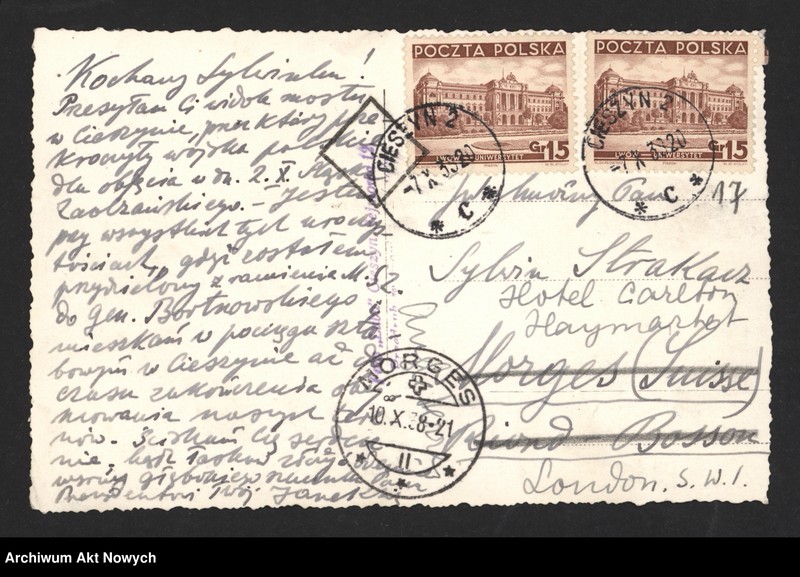 Kochany Sylwinku!
Przesyłam Ci widok mostu
w Cieszynie, przez który prze
kroczyły wojska polskie
dla objęcia w dn. 2.X. Śląska
Zaolzańskiego. – Jestem
przy wszystkich tych uroczy-
stościach, gdyż zostałem
przydzielony z ramienia M.S.Z.
do gen. Bortnowskiego
mieszkam w pociągu szta
bowym w Cieszynie aż do
czasu zakończenia
mowania naszych
nów. Ściskam Cię serdecz
nie, bądź łaskaw złożyć
wyrazy głębokiego szacunku Panu
Prezydentowi Twój Janek
POCZTA POLSKA
LWÓW UNIWERSYTET
Gr 15
POCZTA POLSKA
LWÓW UNIWERSYTET
Gr 15
CIESZYN 2
-7 X 38 20
* C *
CIESZYN 2
-7 X 38 20
* C *
17
Pan
Sylwin Strakacz
Hotel Carlton
Haymarket
Morges (Suisse)
Riond Bosson
London. S.W.1.
MORGES
10.X.38-21
Archiwum Akt Nowych